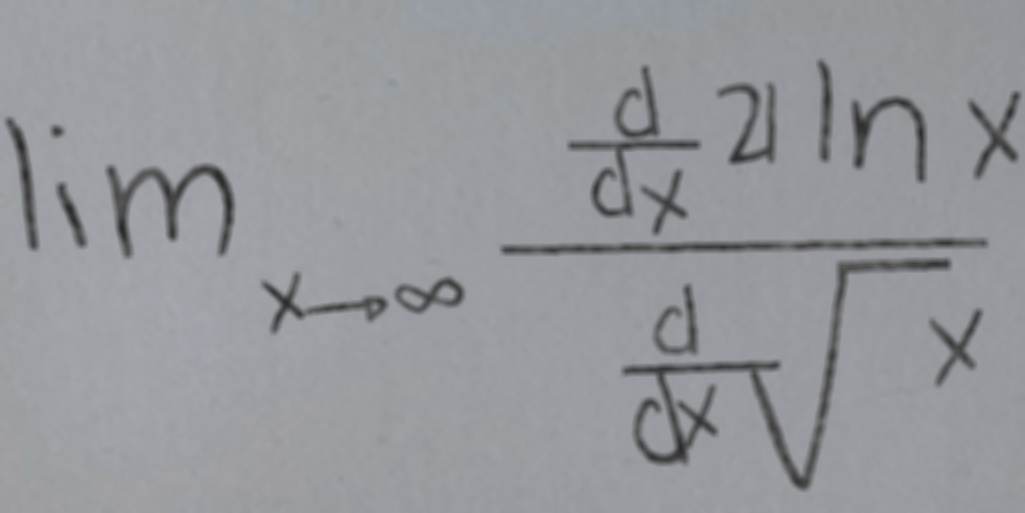 lim x→∞ \frac{\frac{d}{dx} 21 ln x}{\frac{d}{dx} \sqrt{x}}